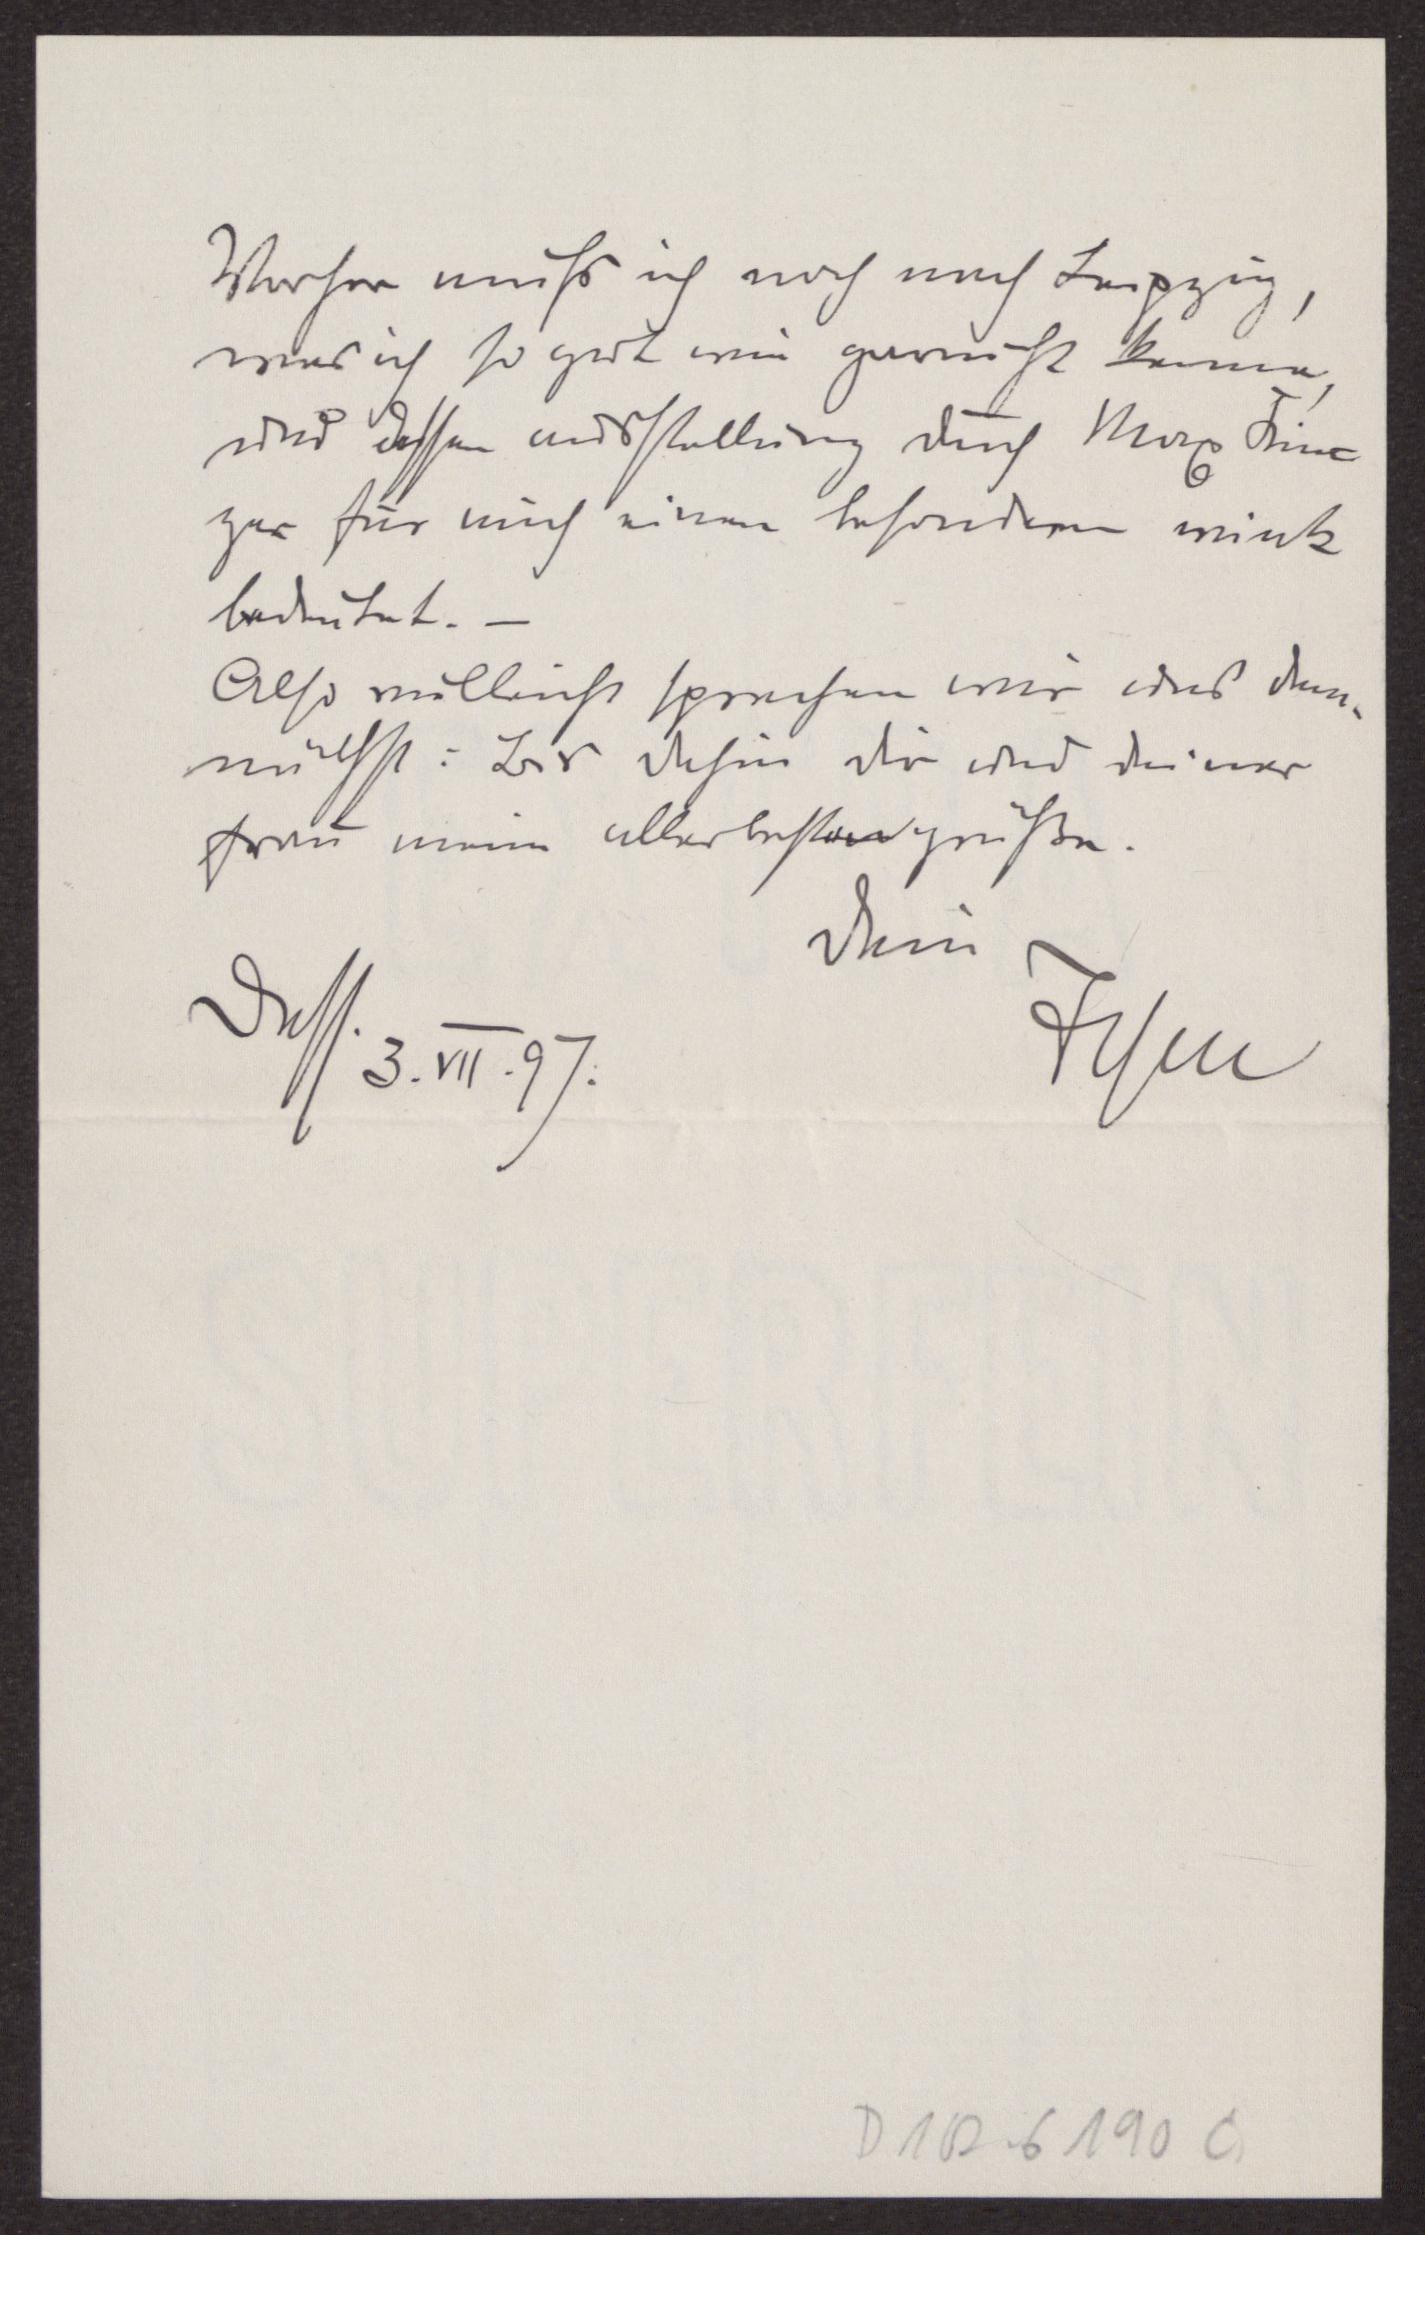 Vorher muß ich noch nach Leipzig,
was ich so gut wie garnicht kenne,
und dessen ausstellung durch Max Klin-
ger für mich einen besondern wink
bedeutet. —
Also vielleicht sprechen wir uns dem-
nächst: Bis dahin dir und deiner
frau meine allerbesten grüße.
Dein
Dass. 3. VII. 97.
D 102.6190 C